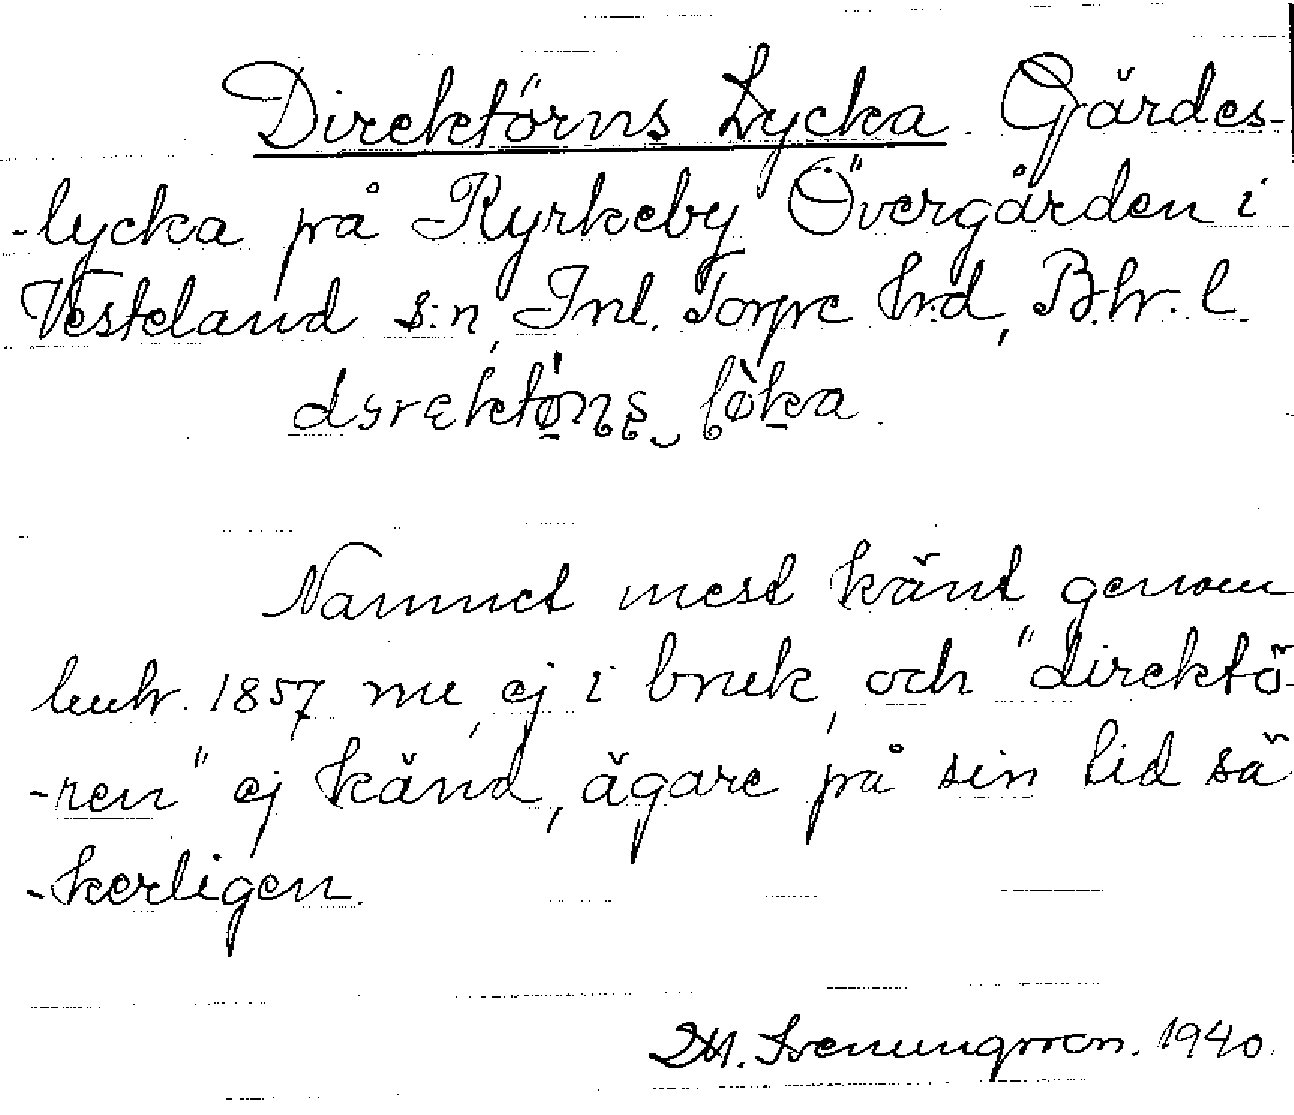 Direktörns Lycka. Gärdes-
-lycka på Kyrkeby Övergården i
Vesteland s:n, Inl. Torpe hrd, B.hr. l.
Namnet mest känt genom
lantr. 1857 nu, ej i bruk, och "direktö-
-ren" ej känd, ägare på sin tid sä
-kerligen.
M. Svenungsson. 1940.